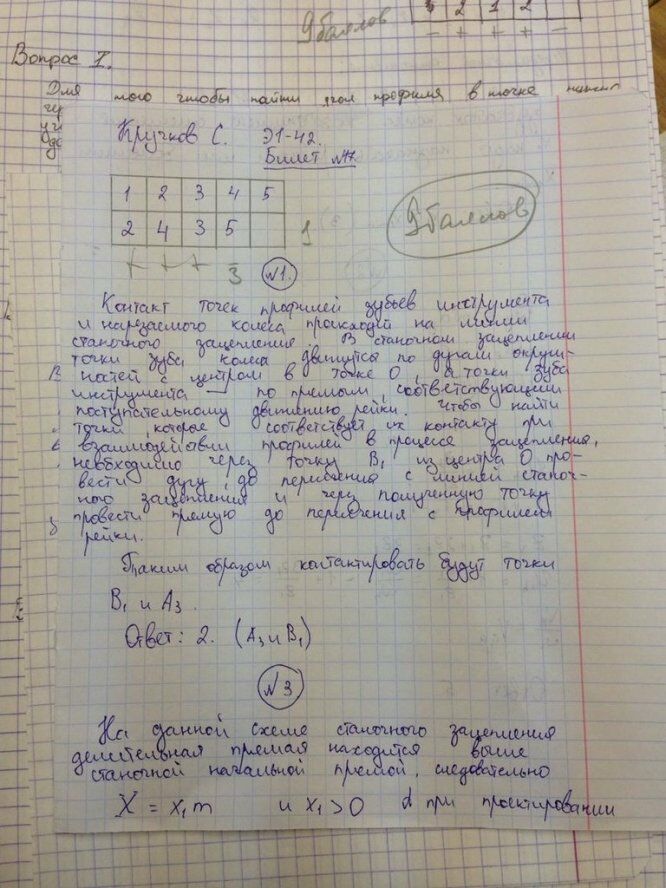 9 баллов
2 1 2
- + + + -
Вопрос I.
Для того чтобы найти угол профиля в точке
Кручков С. Э1-42.
Билет №17.
1 2 3 4 5
2 4 3 5
1
9 баллов
+ + + -
3
№1.
Контакт точек профилей зубьев инструмента
и нарезаемого колеса происходит на линии
станочного зацепления. В станочном зацеплении
точки зуба колеса движутся по дугам окруж-
ностей с центром в точке О, а точки зуба
инструмента — по прямым, соответствующим
поступательному движению рейки. Чтобы найти
точки, которое соответствует их контакту при
взаимодействии профилей в процессе зацепления,
необходимо через точку B₁ из центра О про-
вести дугу до пересечения с линией станоч-
ного зацепления и через полученную точку
провести прямую до пересечения с профилем
рейки.
Таким образом контактировать будут точки
B₁ и A₃.
Ответ: 2. (A₃ и B₁)
№3
На данной схеме станочного зацепления
делительная прямая находится выше
станочной начальной прямой, следовательно
X = x₁m и x₁>0 при проектировании